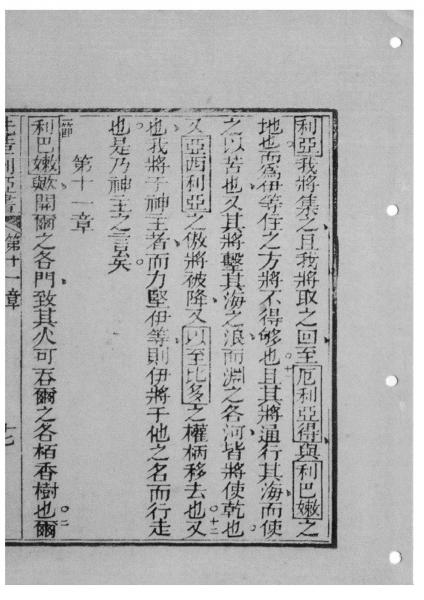 利亞我將集之且我將取之回至厄利亞得與利巴嫩之
地也而爲伊等住之方將不得够也十一且其將通行其海而使
之以苦也又其將擊其海之浪而淵之各河皆將使乾也
又亞西利亞之傲將被降又以至比多之權柄移去也十二又
也我將于神主者而力堅伊等則伊將于他之名而行走
也是乃神主之言矣
第十一章
節利巴嫩歟開爾之各門致其火可吞爾之各栢香樹也二爾
第十一章
七